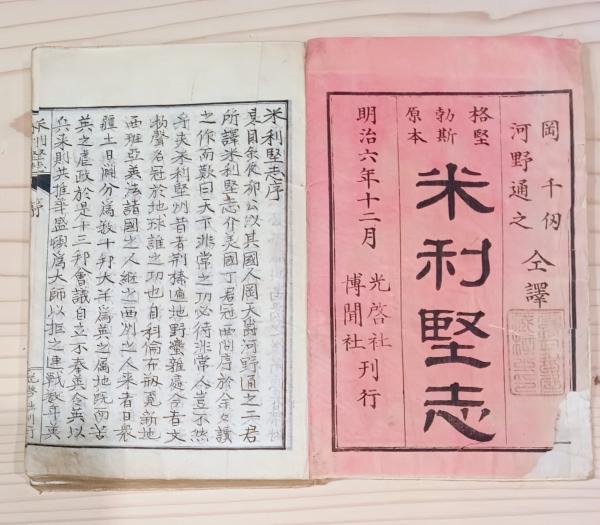 岡 千仭
河野通之
仝譯
米利堅志
格堅
勃斯
原本
明治六年十二月
光啓社
博聞社
刊行
米利堅志序
公以其國人岡大爵河野通之二君
所譯米利堅志介英國丁君冠西問序於余々讀
之作而歎曰天下非常之功必待非常人豈不然
乎夫米利堅州昔者荊榛遍地野蠻雜處今者文
物聲名冠於地球誰之功也自科倫布剏覓新地
西班亞英法諸國之人継之西州之人來者日衆
疆土日闢分爲數十邦大半爲英之属地既而苦
英之虐政於是十三邦會議自立不奉英令英以
兵來則共推華盛頓爲大師以拒之連戰數年英
米利堅志 序